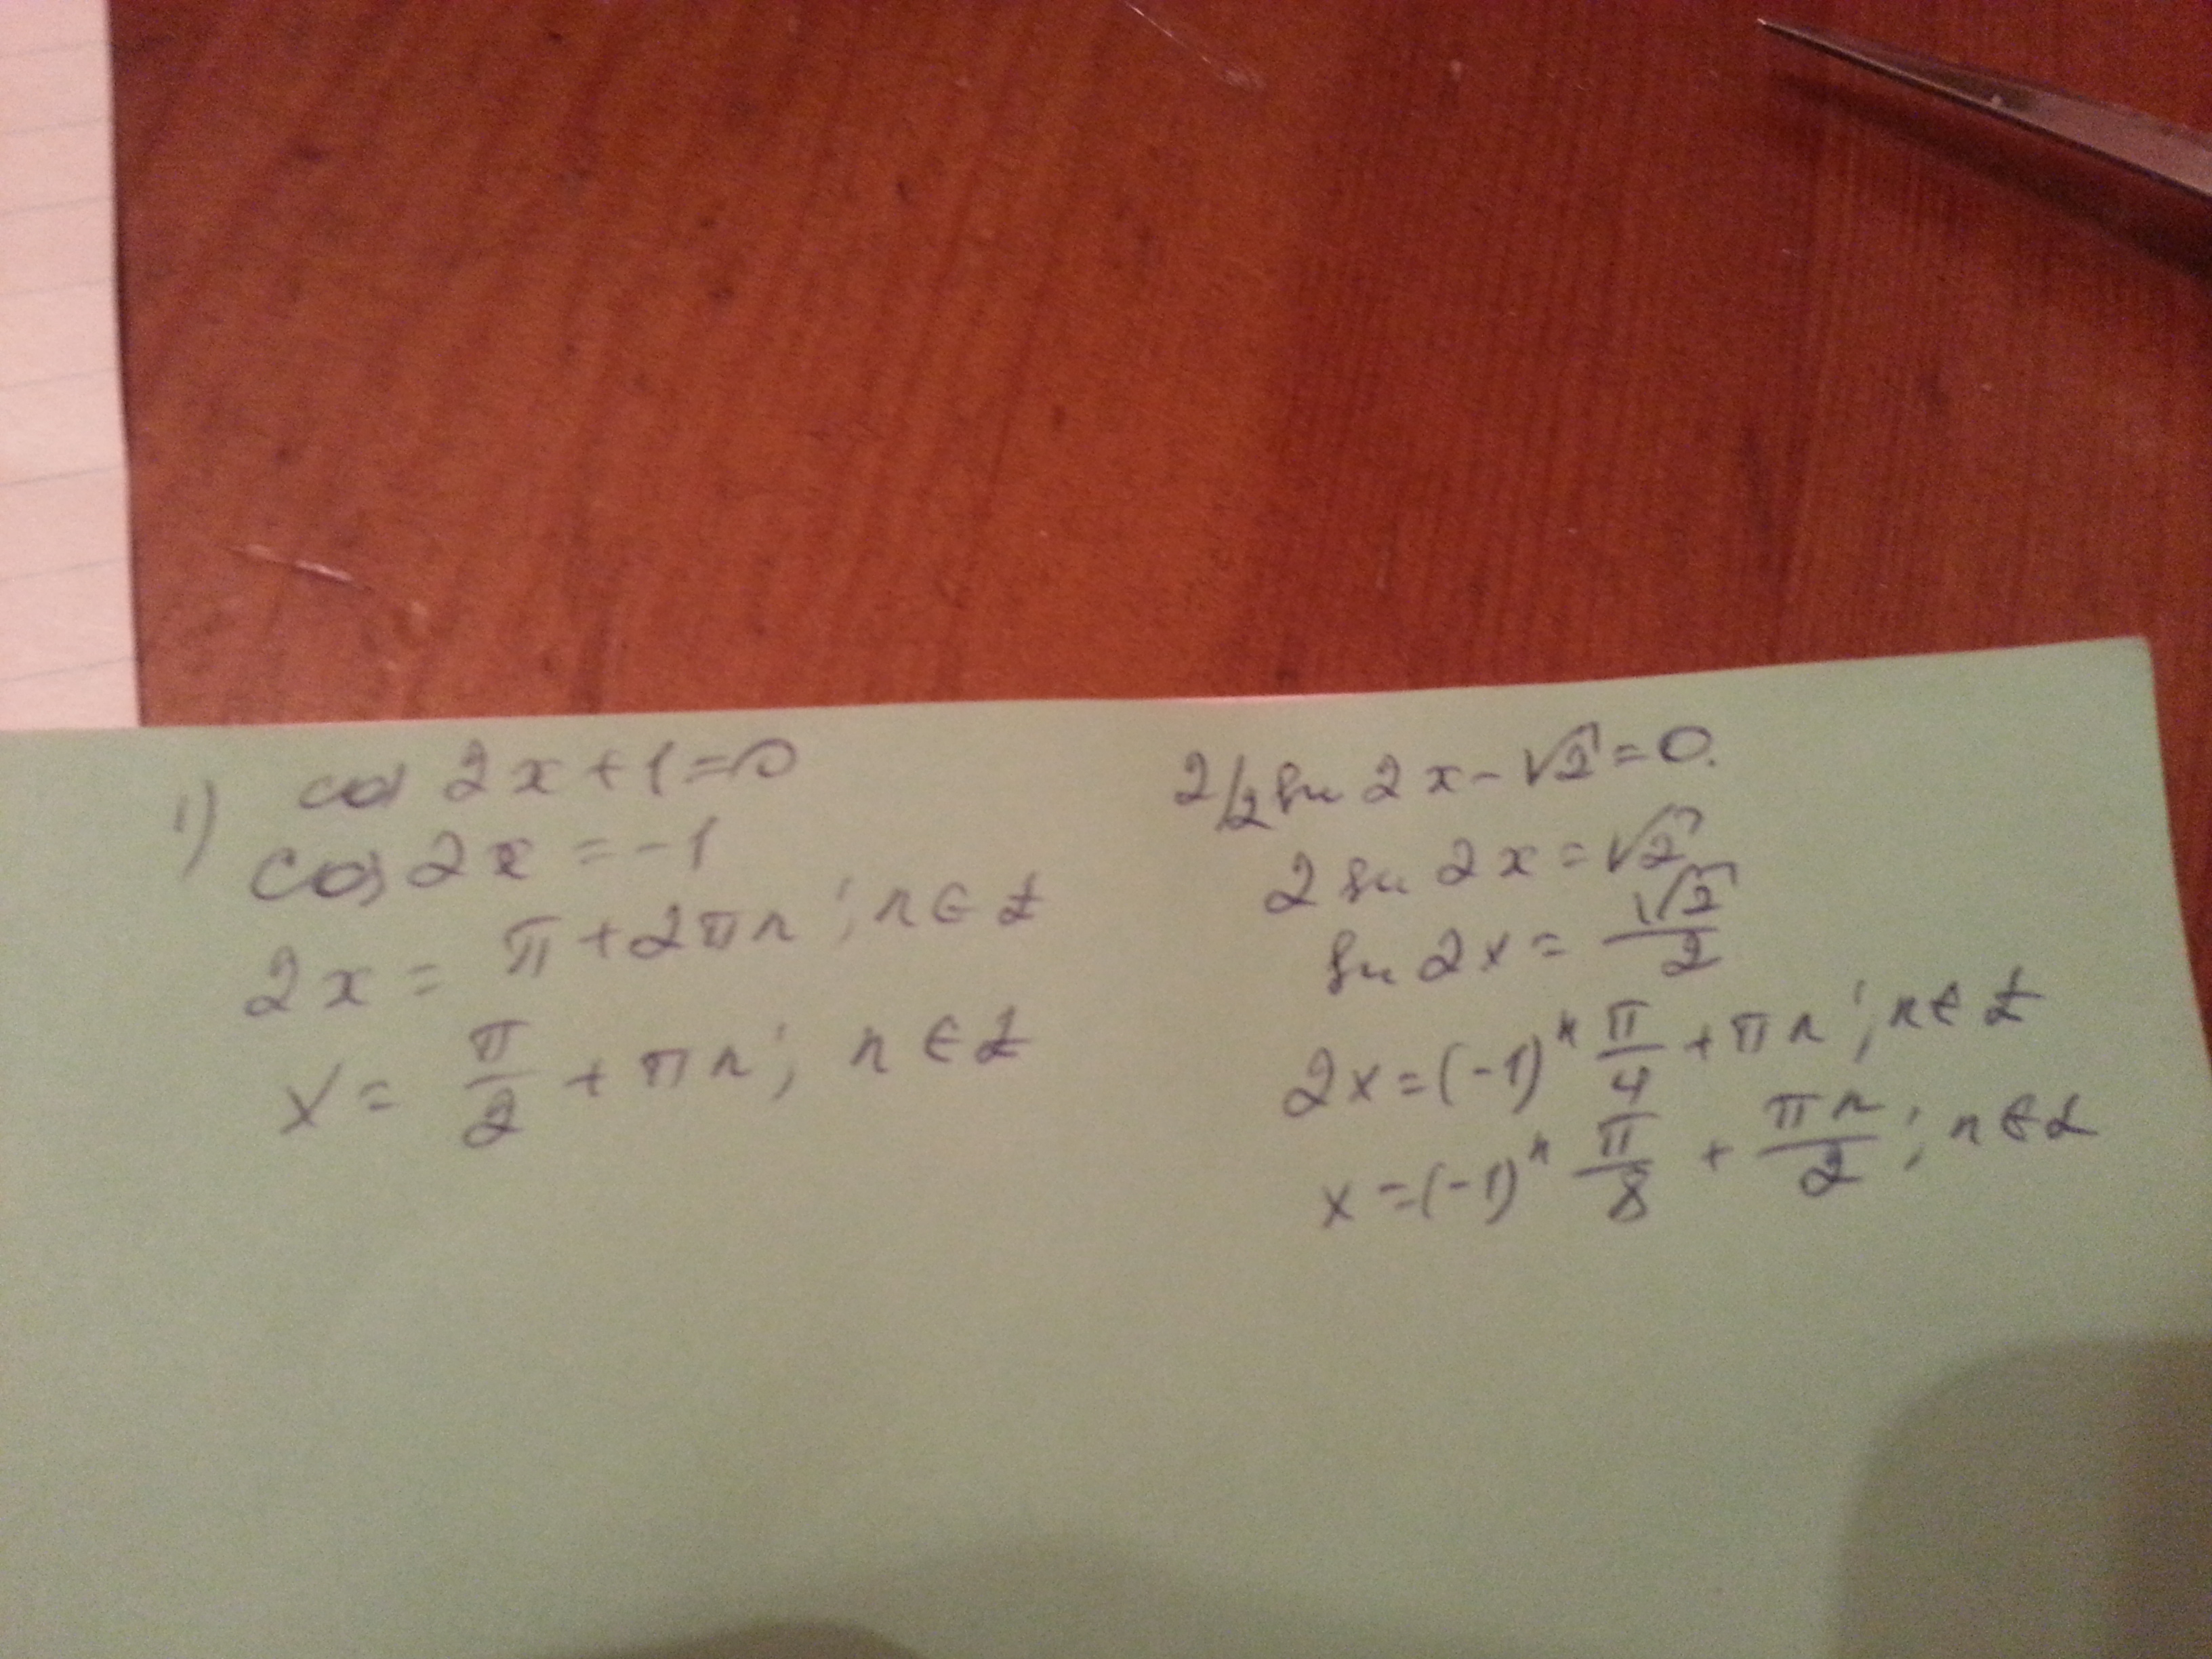 1) cos 2x + 1 = 0
cos 2x = -1
2x = π + 2πn ; n ∈ Z
x = π/2 + πn ; n ∈ Z
2/ 2 sin 2x - √2 = 0.
2 sin 2x = √2
sin 2x = √2/2
2x = (-1)ⁿ π/4 + πn ; n ∈ Z
x = (-1)ⁿ π/8 + πn/2 ; n ∈ Z